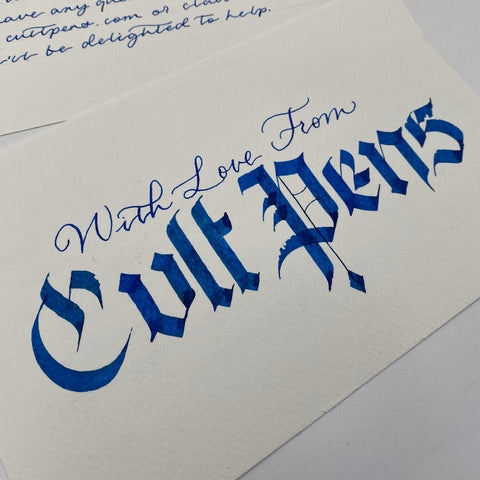 any
cultpens.com or
be delighted to help.
With Love From
Cult Pens